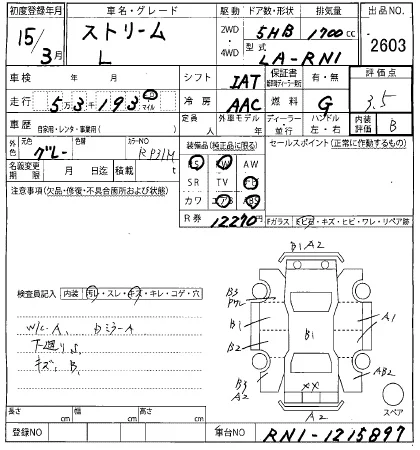 初度登録年月 車名・グレード 駆動 ドア数・形状 排気量 出品NO
15/3月 ストリーム L 2WD・4WD 5HB 1700cc 2603
型式 LA-RN1
車検 年 月 シフト IAT 保証書 有・無 評価点
走行 5万3千193 キロ マイル 冷房 AAC 燃料 G 3.5
車歴 自家用・レンタ・事業用( ) 定員 人 ディーラー・並行 ハンドル 左・右 内装評価 B
外色 元色 グレー 色替 カラーNO RP31M
装備品(純正品に限る) セールスポイント(正常に作動するもの)
名義変更期限 月 日迄 積載 t
PS PW AW
SR TV エアB
カワ ABS
注意事項(欠品・修復・不具合箇所および状態)
R券 12270円
Fガラス ・キズ・ヒビ・ワレ・リペア跡
検査員記入 内装 汚レ・スレ・キズ・キレ・コゲ・穴
W/C A、 DミラーA
下廻りS、
キズ、B、
B1 A2
B3
B1
B2
B3
A2
B1
A1
AB2
XX
A2
スペア
長さ cm 幅 cm 高さ cm
登録NO 車台NO RN1-1215897